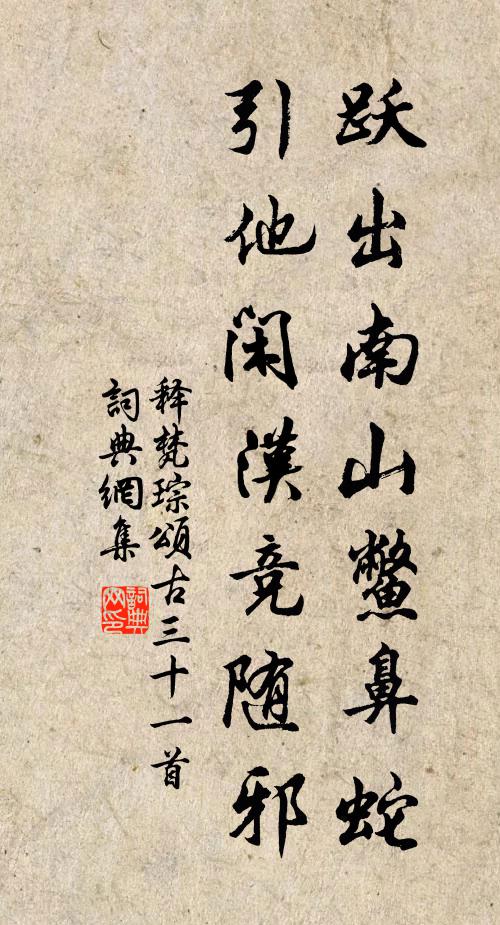 跃出南山鳖鼻蛇
引他闲汉竞随邪
释梵琮頌古三十一首
詞典網集
詞典网印